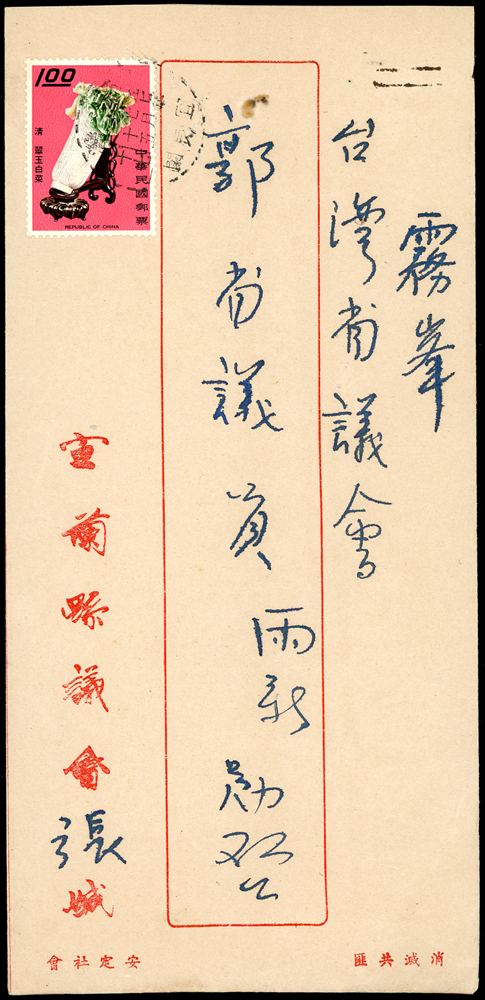 霧峯
台灣省議會
郭省議員雨新勛啓
宜蘭縣議會張緘
消滅共匪
安定社會
1.00
中華民國郵票
清 翠玉白菜
REPUBLIC OF CHINA